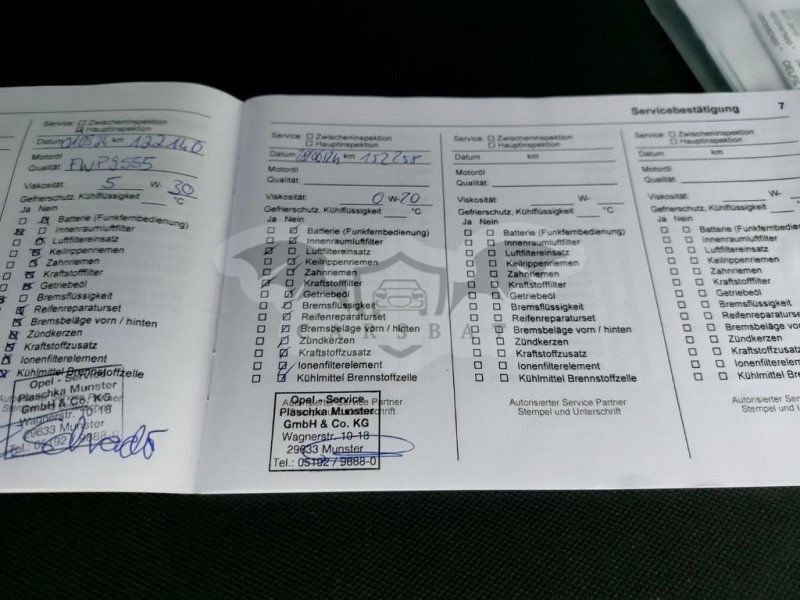 Servicebestätigung 7
Service: Zwischeninspektion
Hauptinspektion
Datum km 122140
Motoröl
Qualität:
Viskosität: 5 W- 30
Gefrierschutz, Kühlflüssigkeit °C
Ja Nein
Batterie (Funkfernbedienung)
Innenraumluftfilter
Luftfiltereinsatz
Keilrippenriemen
Zahnriemen
Kraftstofffilter
Getriebeöl
Bremsflüssigkeit
Reifenreparaturset
Bremsbeläge vorn / hinten
Zündkerzen
Kraftstoffzusatz
Ionenfilterelement
Kühlmittel Brennstoffzelle
Opel - Service
Plaschka Munster
GmbH & Co. KG
Wagnerstr. 10-18
29633 Munster
Tel.: 05192 / 9888-0
Service: Zwischeninspektion
Hauptinspektion
Datum km
Motoröl
Qualität:
Viskosität: 0 W- 20
Gefrierschutz, Kühlflüssigkeit °C
Ja Nein
Batterie (Funkfernbedienung)
Innenraumluftfilter
Luftfiltereinsatz
Keilrippenriemen
Zahnriemen
Kraftstofffilter
Getriebeöl
Bremsflüssigkeit
Reifenreparaturset
Bremsbeläge vorn / hinten
Zündkerzen
Kraftstoffzusatz
Ionenfilterelement
Kühlmittel Brennstoffzelle
Autorisierter Service Partner
Opel - Service
Plaschka Munster
GmbH & Co. KG
Wagnerstr. 10-18
29633 Munster
Tel.: 05192 / 9888-0
Service: Zwischeninspektion
Hauptinspektion
Datum km
Motoröl
Qualität:
Viskosität: W-
Gefrierschutz, Kühlflüssigkeit °C
Ja Nein
Batterie (Funkfernbedienung)
Innenraumluftfilter
Luftfiltereinsatz
Keilrippenriemen
Zahnriemen
Kraftstofffilter
Getriebeöl
Bremsflüssigkeit
Reifenreparaturset
Bremsbeläge vorn / hinten
Zündkerzen
Kraftstoffzusatz
Ionenfilterelement
Kühlmittel Brennstoffzelle
Autorisierter Service Partner
Stempel und Unterschrift
Service: Zwischeninspektion
Hauptinspektion
Datum km
Motoröl
Qualität:
Viskosität: W-
Gefrierschutz, Kühlflüssigkeit
Ja Nein
Batterie (Funkfernbedienung)
Innenraumluftfilter
Luftfiltereinsatz
Keilrippenriemen
Zahnriemen
Kraftstofffilter
Getriebeöl
Bremsflüssigkeit
Reifenreparaturset
Bremsbeläge vorn / hinten
Zündkerzen
Kraftstoffzusatz
Ionenfilterelement
Kühlmittel Brennstoffzelle
Autorisierter Service
Stempel und